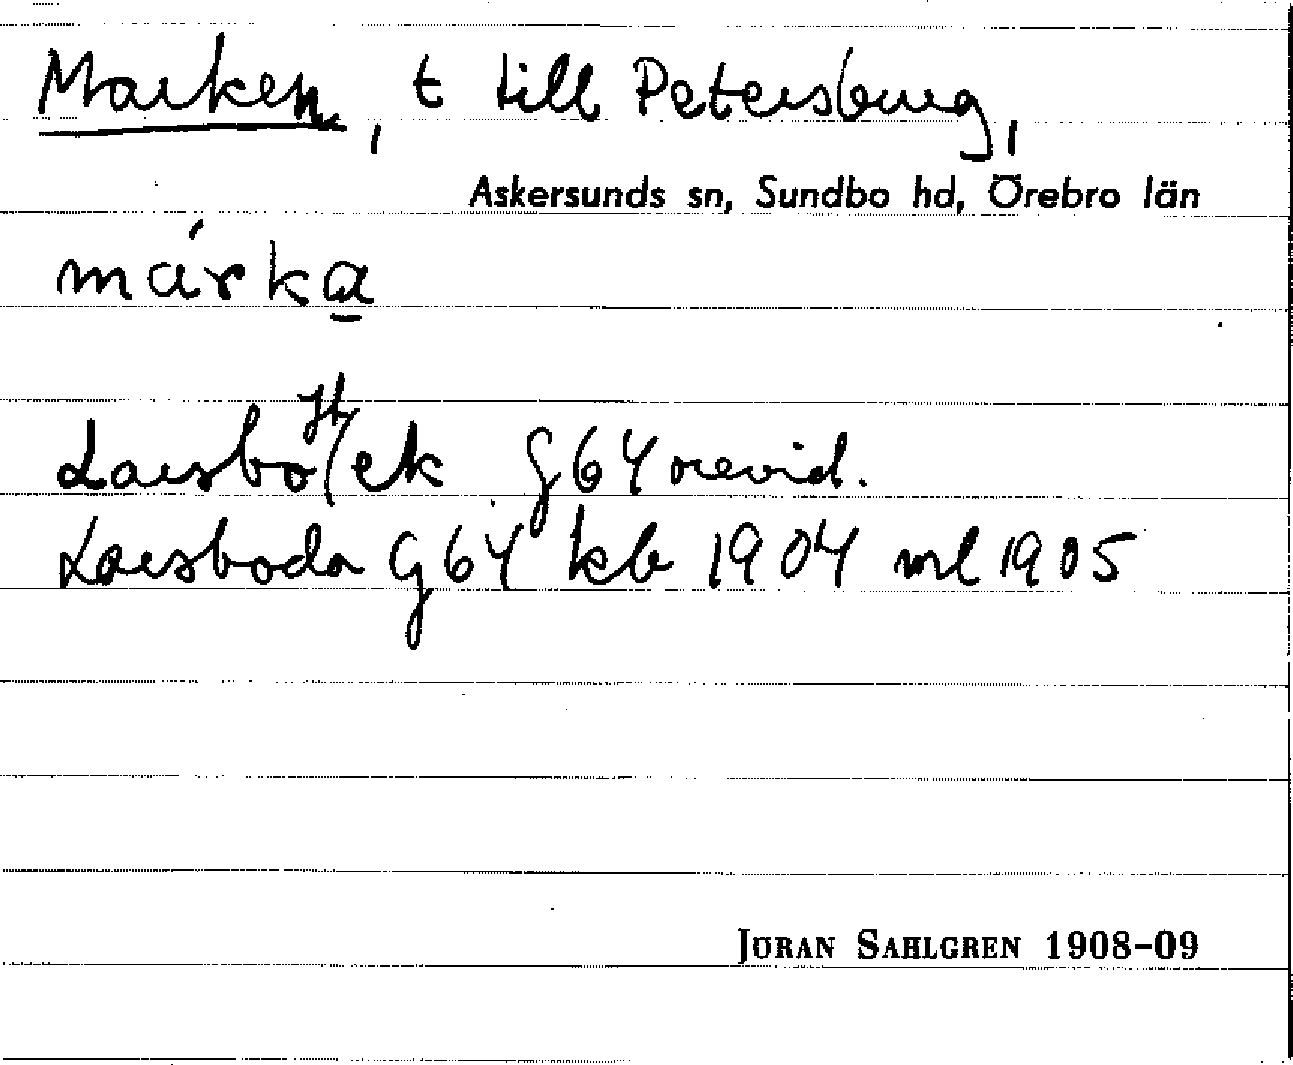 Marken, t till Petersburg,
Askersunds sn, Sundbo hd, Örebro län
márka
Larsbo Jb/ek g64 orevid.
Larsboda g64 kb 1904 ml 1905
JÖRAN SAHLGREN 1908-09